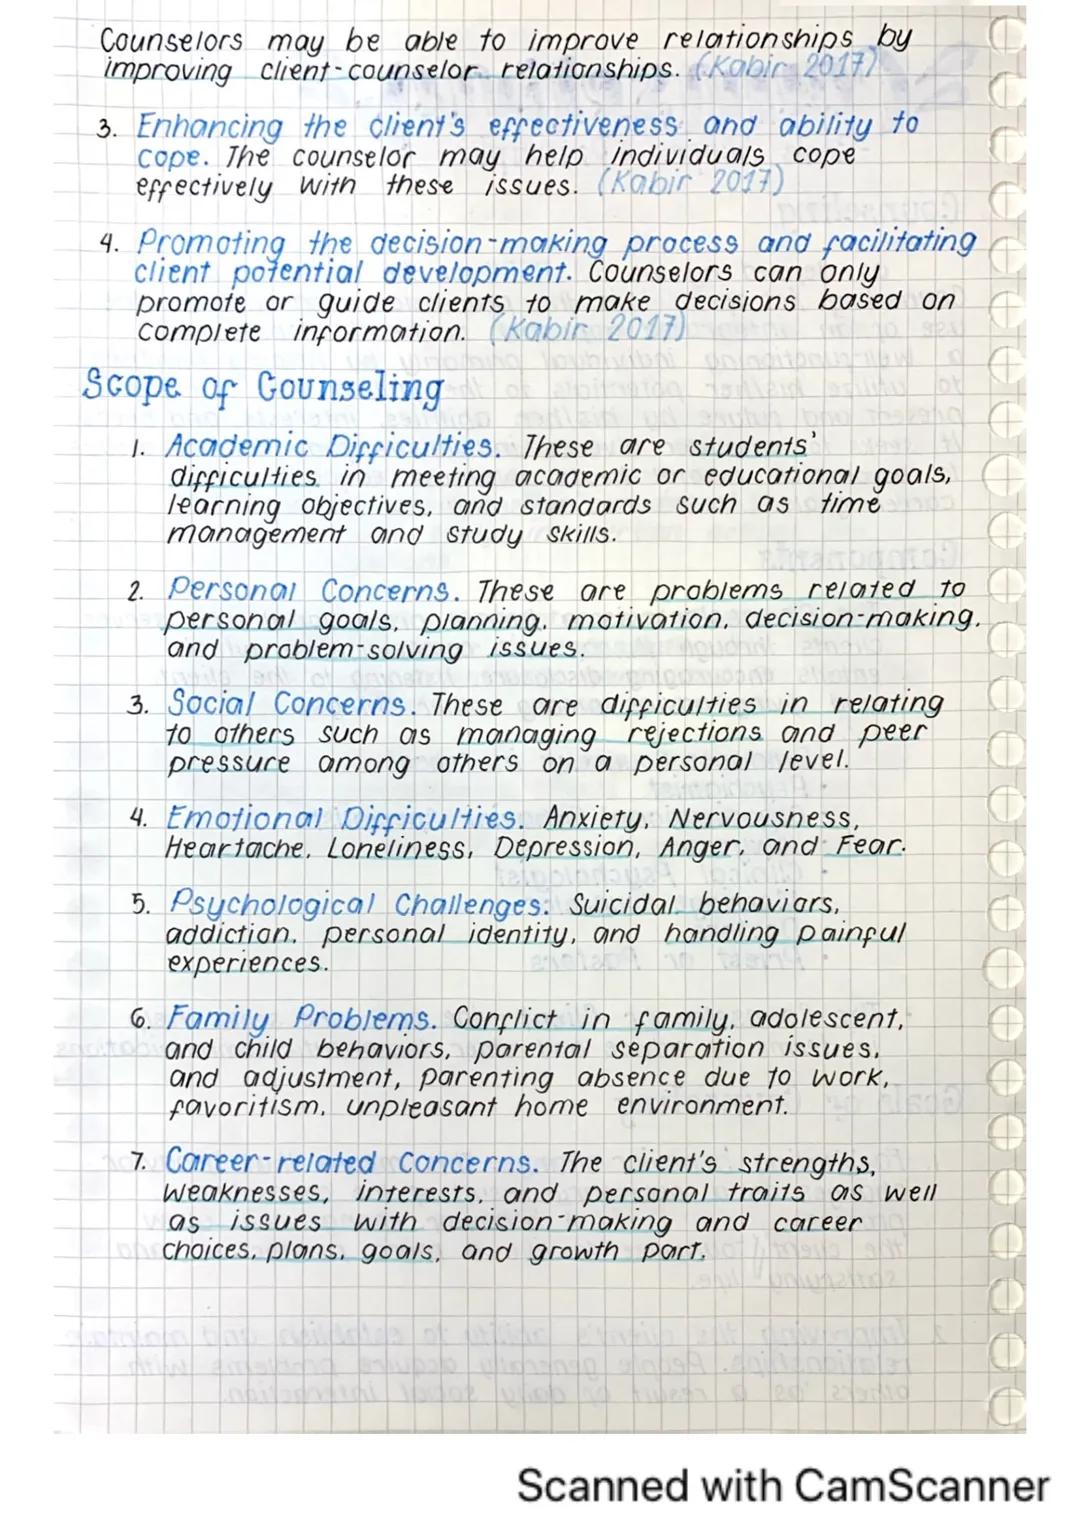 Counselors may be able to improve relationships by
improving client-counselor relationships. (Kabir 2017)
3. Enhancing the client's effectiveness and ability to
cope. The counselor may help individuals cope
effectively with these issues. (Kabir 2017)
4. Promoting the decision-making process and facilitating
client potential development. Counselors can only
promote or guide clients to make decisions based on
complete information. (Kabir 2017)
Scope of Counseling
1. Academic Difficulties. These are students'
difficulties in meeting academic or educational goals,
learning objectives, and standards such as time
management and study skills.
2. Personal Concerns. These are problems related to
personal goals, planning, motivation, decision-making,
and problem-solving issues.
3. Social Concerns. These are difficulties in relating
to others such as managing rejections and peer
pressure among others on a personal level.
4. Emotional Difficulties. Anxiety, Nervousness,
Heartache, Loneliness, Depression, Anger, and Fear.
5. Psychological Challenges: Suicidal behaviors,
addiction, personal identity, and handling painful
experiences.
6. Family Problems. Conflict in family, adolescent,
and child behaviors, parental separation issues,
and adjustment, parenting absence due to work,
favoritism, unpleasant home environment.
7. Career-related Concerns. The client's strengths,
weaknesses, interests, and personal traits as well
as issues with decision-making and career
choices, plans, goals, and growth part.
Scanned with CamScanner